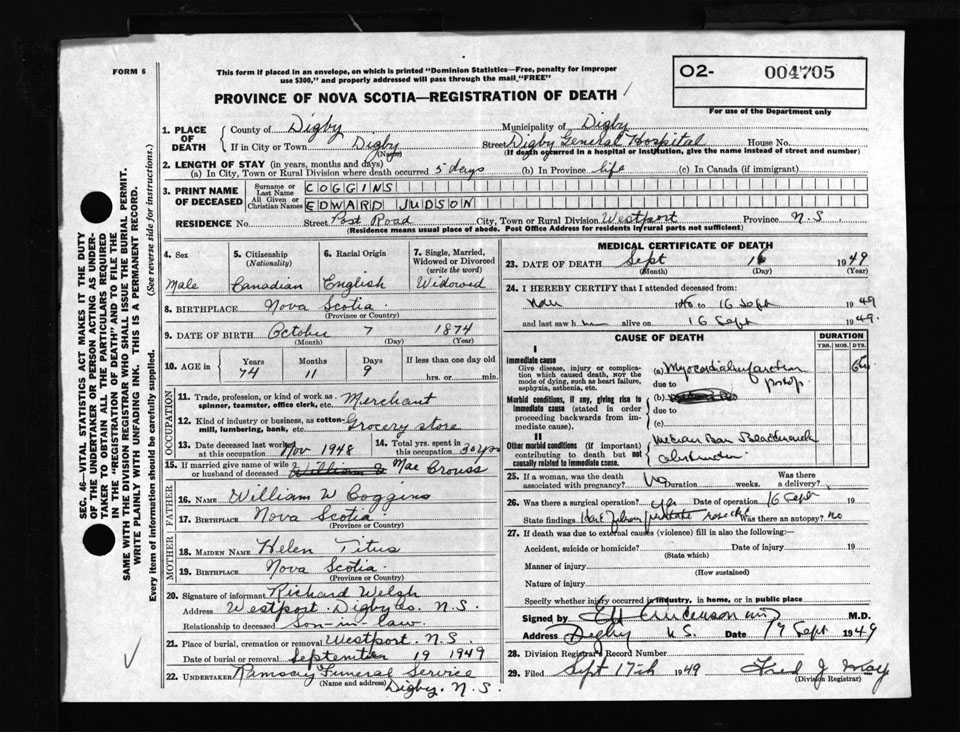 FORM 6
This form if placed in an envelope, on which is printed "Dominion Statistics—Free, penalty for improper
use $300," and properly addressed will pass through the mail "FREE"
O2- 004705
For use of the Department only
PROVINCE OF NOVA SCOTIA—REGISTRATION OF DEATH
1. PLACE OF DEATH
County of Digby Municipality of Digby
If in City or Town Digby Street Digby General Hospital House No.
(Name) (If death occurred in a hospital or institution, give the name instead of street and number)
2. LENGTH OF STAY (in years, months and days)
(a) In City, Town or Rural Division where death occurred 5 days (b) In Province life (c) In Canada (if immigrant)
3. PRINT NAME OF DECEASED
Surname or Last Name COGGINS
All Given or Christian Names EDWARD JUDSON
RESIDENCE No. Street Post Road City, Town or Rural Division Westport Province N.S.
(Residence means usual place of abode. Post Office Address for residents in rural parts not sufficient)
4. Sex Male
5. Citizenship (Nationality) Canadian
6. Racial Origin English
7. Single, Married, Widowed or Divorced (write the word) Widowed
8. BIRTHPLACE Nova Scotia
(Province or Country)
9. DATE OF BIRTH October 7 1874
(Month) (Day) (Year)
10. AGE in Years 74 Months 11 Days 9 If less than one day old
hrs. or min.
OCCUPATION
11. Trade, profession, or kind of work as spinner, teamster, office clerk, etc. Merchant
12. Kind of industry or business, as cotton-mill, lumbering, bank, etc. Grocery store
13. Date deceased last worked at this occupation Nov 1948
14. Total yrs. spent in this occupation 30 yrs
15. If married give name of wife or husband of deceased Mae
FATHER
16. NAME William W Coggins
17. BIRTHPLACE Nova Scotia
(Province or Country)
MOTHER
18. MAIDEN NAME Helen Titus
19. BIRTHPLACE Nova Scotia
(Province or Country)
20. Signature of informant Richard Welsh
Address Westport Digby Co. N.S.
Relationship to deceased Son-in-law
21. Place of burial, cremation or removal Westport, N.S.
Date of burial or removal September 19 1949
22. UNDERTAKER Ramsay Funeral Service
(Name and address) Digby, N.S.
MEDICAL CERTIFICATE OF DEATH
23. DATE OF DEATH Sept 16 1949
(Month) (Day) (Year)
24. I HEREBY CERTIFY that I attended deceased from:
to 16 Sept 1949
and last saw him alive on 16 Sept 1949.
CAUSE OF DEATH DURATION
YRS. MOS. DYS.
I
Immediate cause
Give disease, injury or complication which caused death, not the mode of dying, such as heart failure, asphyxia, asthenia, etc.
(a) Myocardial infarction
due to postop
Morbid conditions, if any, giving rise to immediate cause (stated in order proceeding backwards from immediate cause).
(b)
due to
(c)
II
Other morbid conditions (if important) contributing to death but not causally related to immediate cause.
Median Bar
obstruction
25. If a woman, was the death associated with pregnancy? No Duration weeks. Was there a delivery?
26. Was there a surgical operation? yes Date of operation 16 Sept 19
State findings Was there an autopsy? no
27. If death was due to external causes (violence) fill in also the following:—
Accident, suicide or homicide? Date of injury 19
(State which)
Manner of injury
(How sustained)
Nature of injury
Specify whether injury occurred in industry, in home, or in public place
Signed by M.D.
Address Digby N.S. Date 17 Sept 1949
28. Division Registrar's Record Number
29. Filed Sept 17th 1949 Fred J
(Division Registrar)
SEC. 46—VITAL STATISTICS ACT MAKES IT THE DUTY
OF THE UNDERTAKER OR PERSON ACTING AS UNDER-
TAKER TO OBTAIN ALL THE PARTICULARS REQUIRED
IN THE "REGISTRATION OF DEATH" AND TO FILE THE
SAME WITH THE DIVISION REGISTRAR WHO SHALL ISSUE THE BURIAL PERMIT.
WRITE PLAINLY WITH UNFADING INK. THIS IS A PERMANENT RECORD.
Every item of information should be carefully supplied. (See reverse side for instructions.)